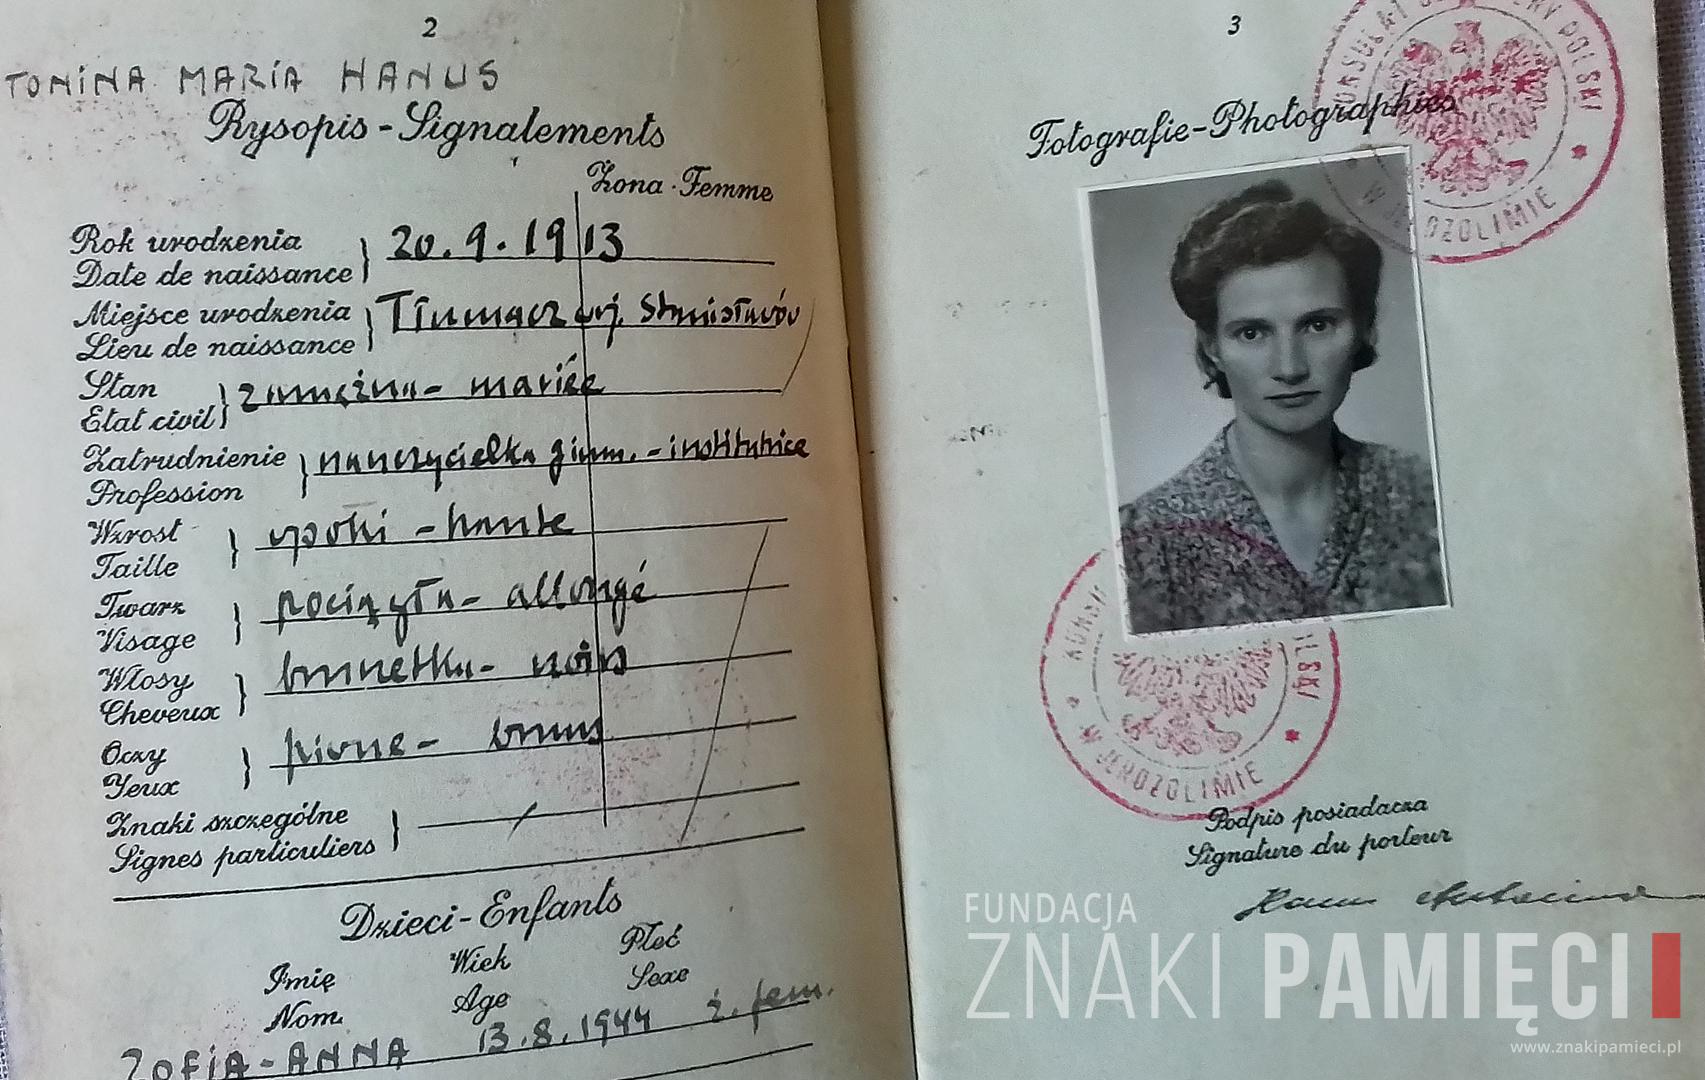 2
TONINA MARIA HANUS
Rysopis - Signalements
Żona - Femme
Rok urodzenia
Date de naissance
20.9.1913
Miejsce urodzenia
Lieu de naissance
Tłumacz woj. Stanisławów
Stan
Etat civil
zamężna - mariée
Zatrudnienie
Profession
nauczycielka gimn. - institutrice
Wzrost
Taille
wysoki - haute
Twarz
Visage
pociągła - allongé
Włosy
Cheveux
brunetka - noirs
Oczy
Yeux
piwne - bruns
Znaki szczególne
Signes particuliers
Dzieci - Enfants
Imię
Nom
Wiek
Age
Płeć
Sexe
ZOFIA - ANNA 13.8.1944 ż. fem.
3
Fotografie - Photographies
POLSKI
W JEROZOLIMIE
W JEROZOLIMIE
Podpis posiadacza
Signature du porteur
Hanus Antonina
FUNDACJA
ZNAKI PAMIĘCI
www.znakipamieci.pl